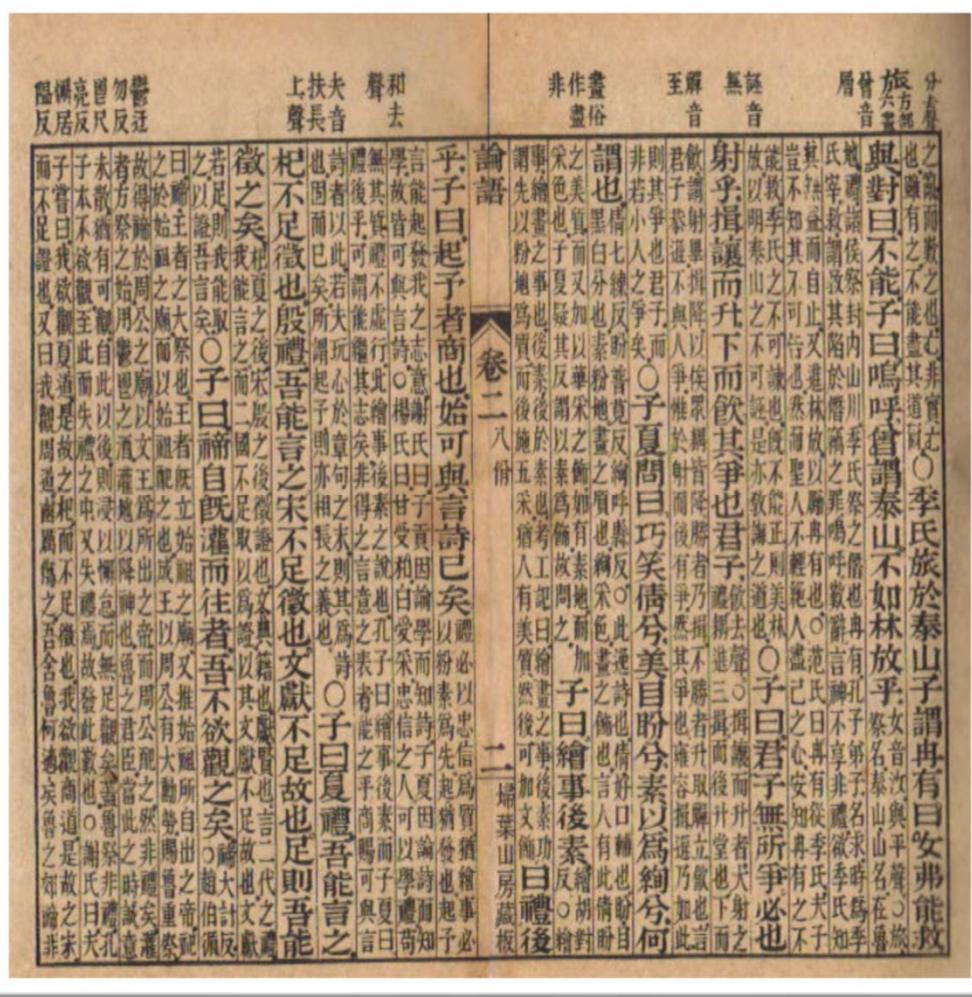 分去聲
旅方部六畫
曾音層
誣音無
解音至
畫俗作畫非
和去聲
夫音扶長上聲
鬱迂勿反
鬯尺亮反
懈居隘反
之亂而歎之也亡非實亡
也雖有之不能盡其道爾
〇季氏旅於泰山子謂冉有曰女弗能救
與對曰不能子曰嗚呼曾謂泰山不如林放乎
女音汝與平聲〇旅
祭名泰山山名在魯
地禮諸侯祭封內山川季氏祭之僭也冉有孔子弟子名求時爲季
氏宰救謂救其陷於僭竊之罪嗚呼歎辭言神不享非禮欲季氏知
其無益而自止又進林放以厲冉有也〇范氏曰冉有從季氏夫子
豈不知其不可告也然而聖人不輕絕人盡己之心安知冉有之不
能救季氏之不可諫也既不能正則美林
放以明泰山之不可誣是亦教誨之道也
〇子曰君子無所爭必也
射乎揖讓而升下而飲其爭也君子
飲去聲〇揖讓而升者大射之
禮耦進三揖而後升堂也下而
飲謂射畢揖降以俟衆耦皆降勝者乃揖不勝者升取觶立飲也言
君子恭遜不與人爭惟於射而後有爭然其爭也雍容揖遜乃如此
則其爭也君子而
非若小人之爭矣
〇子夏問曰巧笑倩兮美目盼兮素以爲絢兮何
謂也
倩七練反盼普莧反絢呼縣反〇此逸詩也倩好口輔也盼目
黑白分也素粉地畫之質也絢采色畫之飾也言人有此倩盼
之美質而又加以華采之飾如有素地而加
采色也子夏疑其反謂以素爲飾故問之
子曰繪事後素
繪胡對
反〇繪
事繪畫之事也後素後於素也考工記曰繪畫之事後素功
謂先以粉地爲質而後施五采猶人有美質然後可加文飾
曰禮後
論語
卷二
八佾
二
埽葉山房藏板
乎子曰起予者商也始可與言詩已矣
禮必以忠信爲質猶繪事必
以粉素爲先起猶發也起予
言能起發我之志意謝氏曰子貢因論學而知詩子夏因論詩而知
學故皆可與言詩〇楊氏曰甘受和白受采忠信之人可以學禮苟
無其質禮不虛行此繪事後素之說也孔子曰繪事後素而子夏曰
禮後乎可謂能繼其志矣非得之言意之表者能之乎商賜可與言
詩者以此若夫玩心於章句之末則其爲詩
也固而已矣所謂起予則亦相長之義也
〇子曰夏禮吾能言之
杞不足徵也殷禮吾能言之宋不足徵也文獻不足故也足則吾能
徵之矣
杞夏之後宋殷之後徵證也文典籍也獻賢也言二代之禮
我能言之而二國不足取以爲證以其文獻不足故也文獻
若足則我能取
之以證吾言矣
〇子曰禘自既灌而往者吾不欲觀之矣
禘大計反
〇趙伯循
曰禘王者之大祭也王者既立始祖之廟又推始祖所自出之帝祀
之於始祖之廟而以始祖配之也成王以周公有大勳勞賜魯重祭
故得禘於周公之廟以文王爲所出之帝而周公配之然非禮矣灌
者方祭之始用鬱鬯之酒灌地以降神也魯之君臣當此之時誠意
未散猶有可觀自此以後則浸以懈怠而無足觀矣蓋魯祭非禮孔
子本不欲觀至此而失禮之中又失禮焉故發此歎也〇謝氏曰夫
子嘗曰我欲觀夏道是故之杞而不足徵也我欲觀商道是故之宋
而不足證也又曰我觀周道幽厲傷之吾舍魯何適矣魯之郊禘非